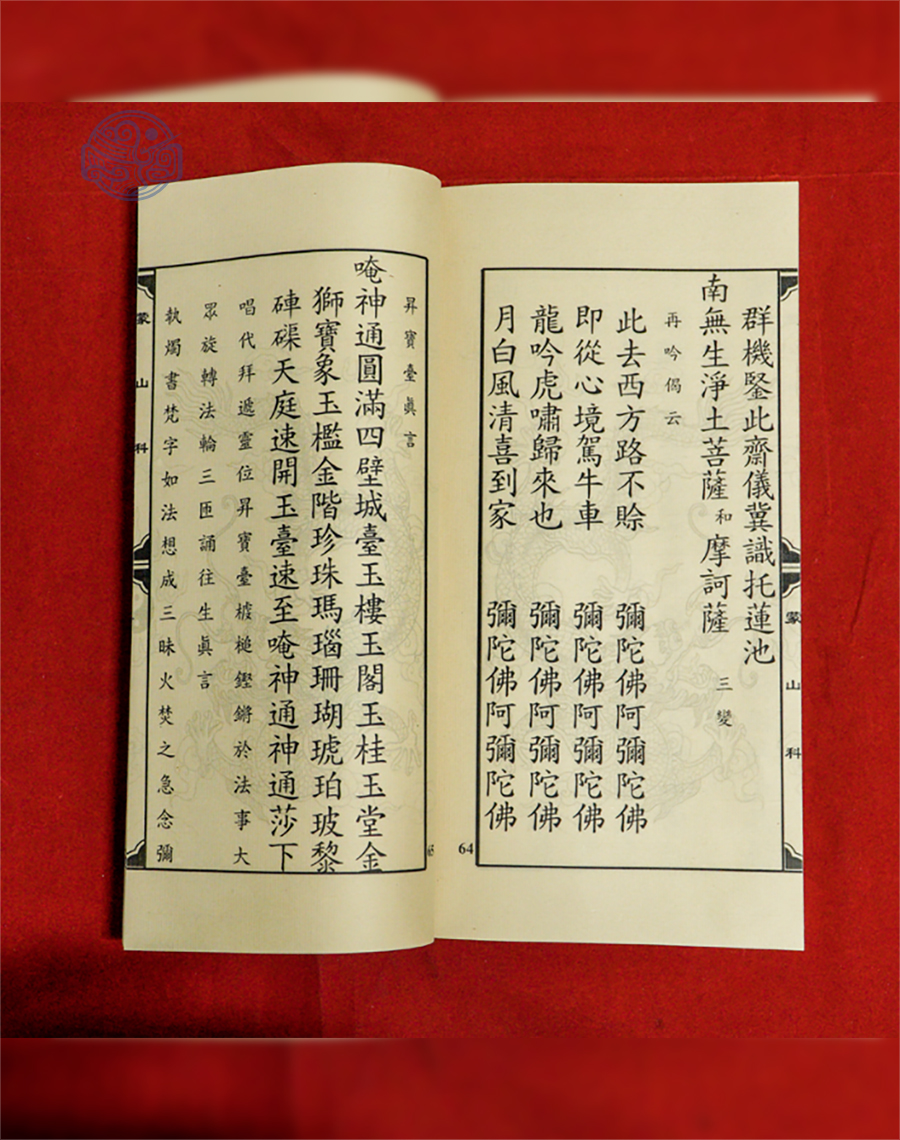 群機鋻此齋儀冀識托蓮池
南無生淨土菩薩和摩訶薩 三變
再吟偈云
此去西方路不賒 彌陀佛阿彌陀佛
即從心境駕牛車 彌陀佛阿彌陀佛
龍吟虎嘯歸來也 彌陀佛阿彌陀佛
月白風清喜到家 彌陀佛阿彌陀佛
蒙山科
64
昇寶臺眞言
唵神通圓滿四壁城臺玉樓玉閣玉桂玉堂金
獅寶象玉檻金階珍珠瑪瑙珊瑚琥珀玻黎
硨磲天庭速開玉臺速至唵神通神通莎下
唱代拜遞靈位昇寶臺槌鏗鏘於法事大
眾旋轉法輪三匝誦往生眞言
執燭書梵字如法想成三昧火焚之急念彌
蒙山科